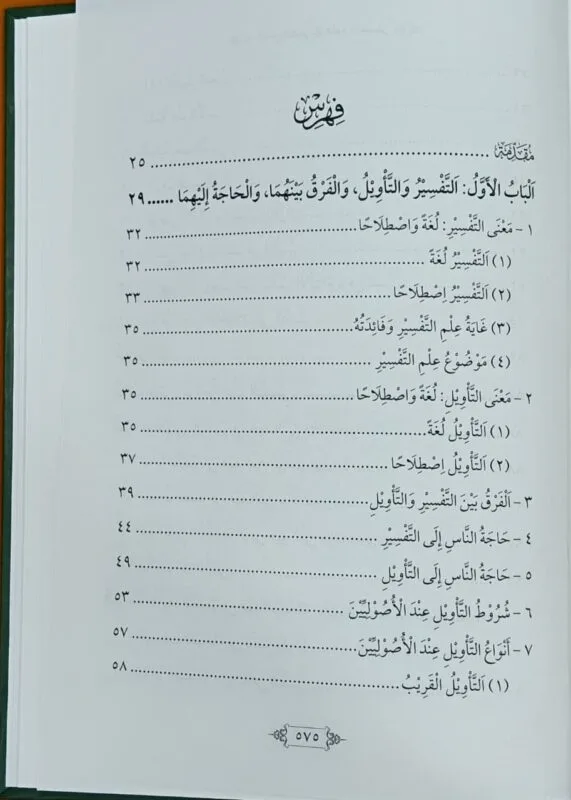 فِهْرِسْ
مُقَدِّمَة ........ ٢٥
اَلْبَابُ الْأَوَّلُ: اَلتَّفْسِيْرُ وَالتَّأْوِيْلُ، وَالْفَرْقُ بَيْنَهُمَا، وَالْحَاجَةُ إِلَيْهِمَا ...... ٢٩
١ - مَعْنَى التَّفْسِيْرِ: لُغَةً وَاصْطِلَاحًا ........ ٣٢
(١) اَلتَّفْسِيْرُ لُغَةً ........ ٣٢
(٢) اَلتَّفْسِيْرُ اِصْطِلَاحًا ........ ٣٣
(٣) غَايَةُ عِلْمِ التَّفْسِيْرِ وَفَائِدَتُهُ ........ ٣٥
(٤) مَوْضُوْعُ عِلْمِ التَّفْسِيْرِ ........ ٣٥
٢ - مَعْنَى التَّأْوِيْلِ: لُغَةً وَاصْطِلَاحًا ........ ٣٥
(١) اَلتَّأْوِيْلُ لُغَةً ........ ٣٥
(٢) اَلتَّأْوِيْلُ اِصْطِلَاحًا ........ ٣٧
٣ - اَلْفَرْقُ بَيْنَ التَّفْسِيْرِ وَالتَّأْوِيْلِ ........ ٣٩
٤ - حَاجَةُ النَّاسِ إِلَى التَّفْسِيْرِ ........ ٤٤
٥ - حَاجَةُ النَّاسِ إِلَى التَّأْوِيْلِ ........ ٤٩
٦ - شُرُوْطُ التَّأْوِيْلِ عِنْدَ الْأُصُوْلِيِّيْنَ ........ ٥٣
٧ - أَنْوَاعُ التَّأْوِيْلِ عِنْدَ الْأُصُوْلِيِّيْنَ ........ ٥٧
(١) اَلتَّأْوِيْلُ الْقَرِيْبُ ........ ٥٨
٥٧٥